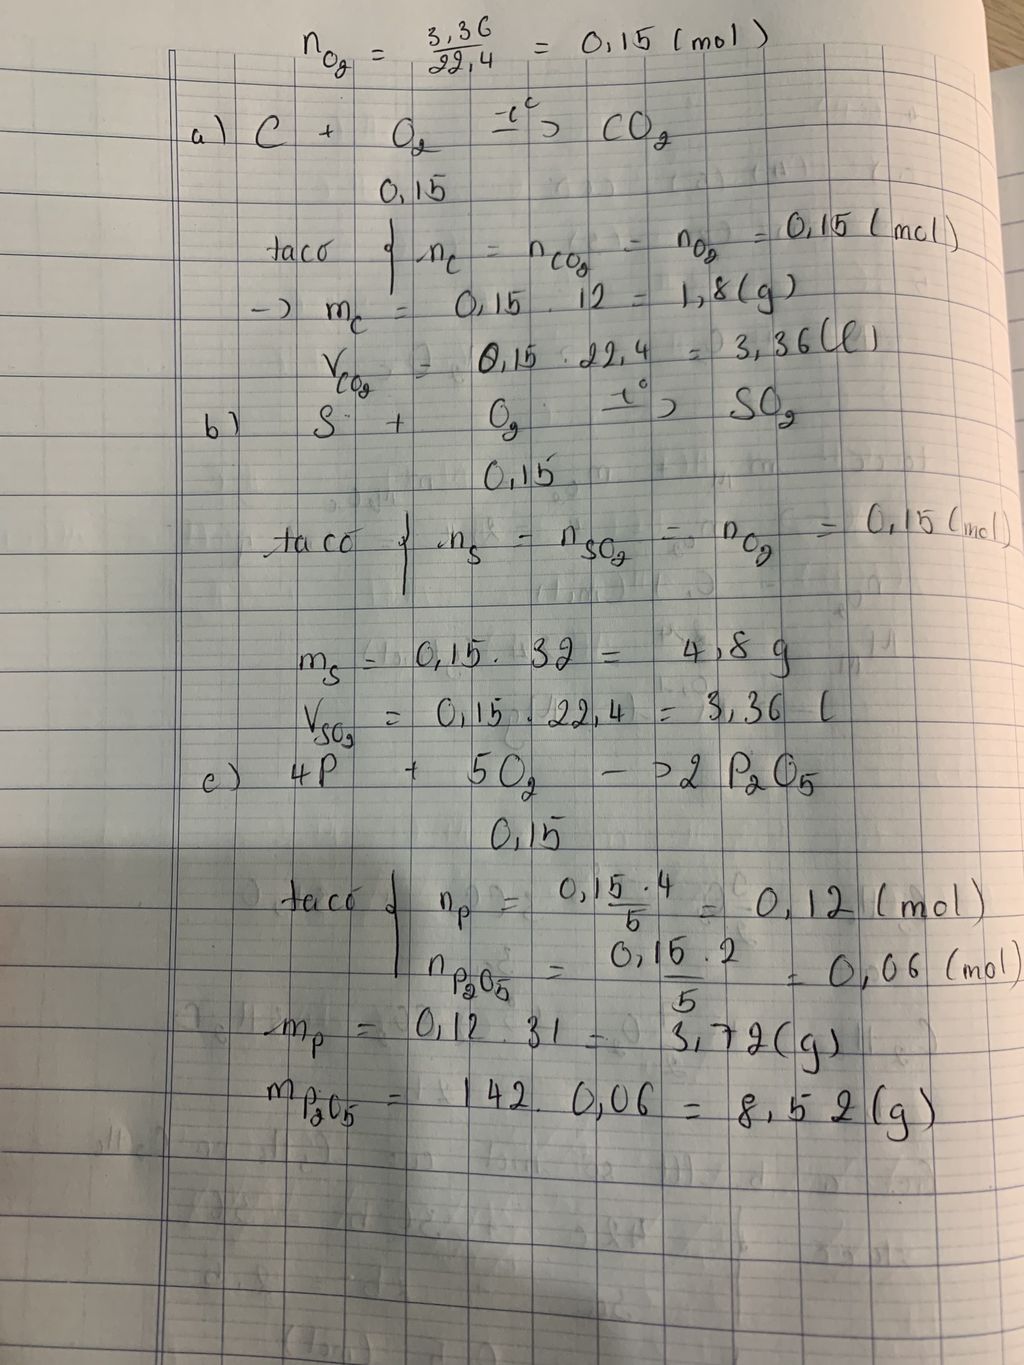 nO2 = 3,36/22,4 = 0,15 (mol)
a) C + O2 -t°-> CO2
0,15
ta có { nC = nCO2 = nO2 = 0,15 (mol)
-> mC = 0,15 . 12 = 1,8 (g)
VCO2 = 0,15 . 22,4 = 3,36 (l)
b) S + O2 -t°-> SO2
0,15
ta có { nS = nSO2 = nO2 = 0,15 (mol)
mS = 0,15 . 32 = 4,8 g
VSO2 = 0,15 . 22,4 = 3,36 l
c) 4P + 5O2 -> 2 P2O5
0,15
ta có { nP = 0,15 . 4/5 = 0,12 (mol)
nP2O5 = 0,15 . 2/5 = 0,06 (mol)
mP = 0,12 . 31 = 3,72 (g)
mP2O5 = 142 . 0,06 = 8,52 (g)